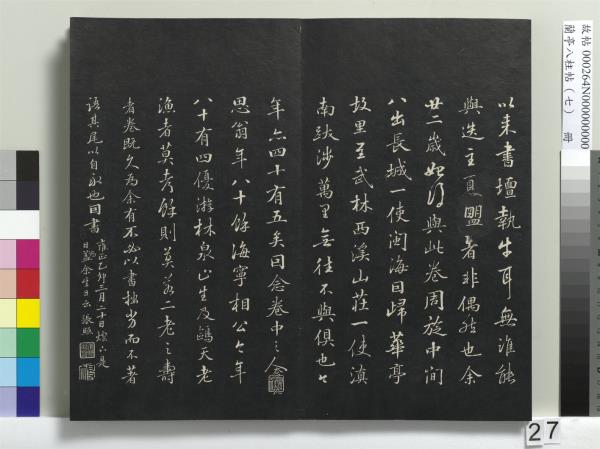 故帖000264N000000000
蘭亭八柱帖（七） 冊
以来書壇執牛耳無誰能
與迭主夏盟者非偶然也余
廿二歲始得與此卷周旋中間
八出長城一使閩海回歸華亭
故里至武林西溪山莊一使滇
南跋涉萬里無往不與俱也今
年亦四十有五矣因念卷中之人
思翁年八十餘海寧相公今年
八十有四優游林泉山生及鷗天老
漁者莫考餘則莫若二老之壽
者卷既久為余有不必以書拙劣而不著
語其尾以自永也因書
雍正乙卯三月二十日
日 余生日也 張照
27